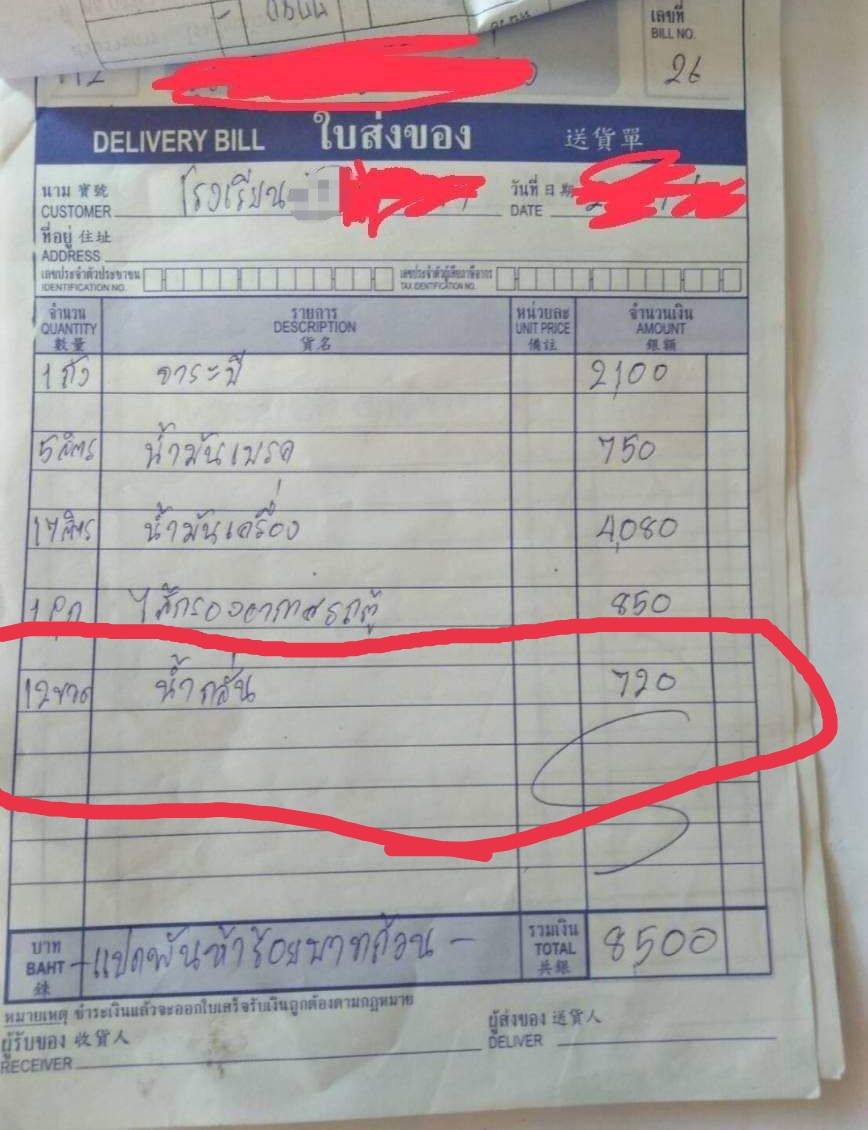 เลขที่
BILL NO.
26
DELIVERY BILL ใบส่งของ 送貨單
นาม 寶號
CUSTOMER โรงเรียน
วันที่ 日期
DATE
ที่อยู่ 住址
ADDRESS
เลขประจำตัวประชาชน
IDENTIFICATION NO.
เลขประจำตัวผู้เสียภาษีอากร
TAX IDENTIFICATION NO.
จำนวน รายการ หน่วยละ จำนวนเงิน
QUANTITY DESCRIPTION UNIT PRICE AMOUNT
數量 貨名 備註 銀額
1 ถัง จาระบี 2,100
5 ลิตร น้ำมันเบรค 750
17 ลิตร น้ำมันเครื่อง 4,080
1 ลูก ไส้กรองอากาศรถตู้ 850
12 ขวด น้ำกลั่น 720
บาท
BAHT
銖
-แปดพันห้าร้อยบาทถ้วน-
รวมเงิน
TOTAL
共銀
8500
หมายเหตุ ชำระเงินแล้วจะออกใบเสร็จรับเงินถูกต้องตามกฎหมาย
ผู้รับของ 收貨人
RECEIVER
ผู้ส่งของ 送貨人
DELIVER